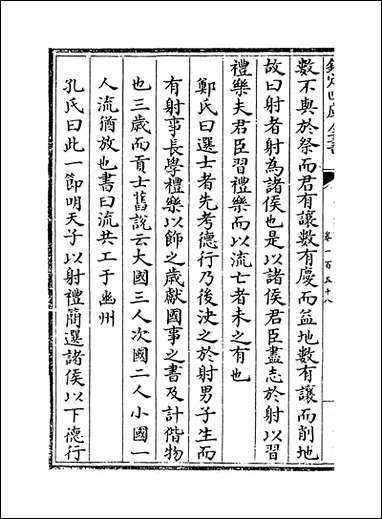 欽定四庫全書
卷一百五十八
數不與於祭而君有讓數有慶而益地數有讓而削地
故曰射者射為諸侯也是以諸侯君臣盡志於射以習
禮樂夫君臣習禮樂而以流亡者未之有也
鄭氏曰選士者先考德行乃後決之於射男子生而
有射事長學禮樂以飾之歲獻國事之書及計偕物
也三歲而貢士舊說云大國三人次國二人小國一
人流猶放也書曰流共工于幽州
孔氏曰此一節明天子以射禮簡選諸侯以下德行